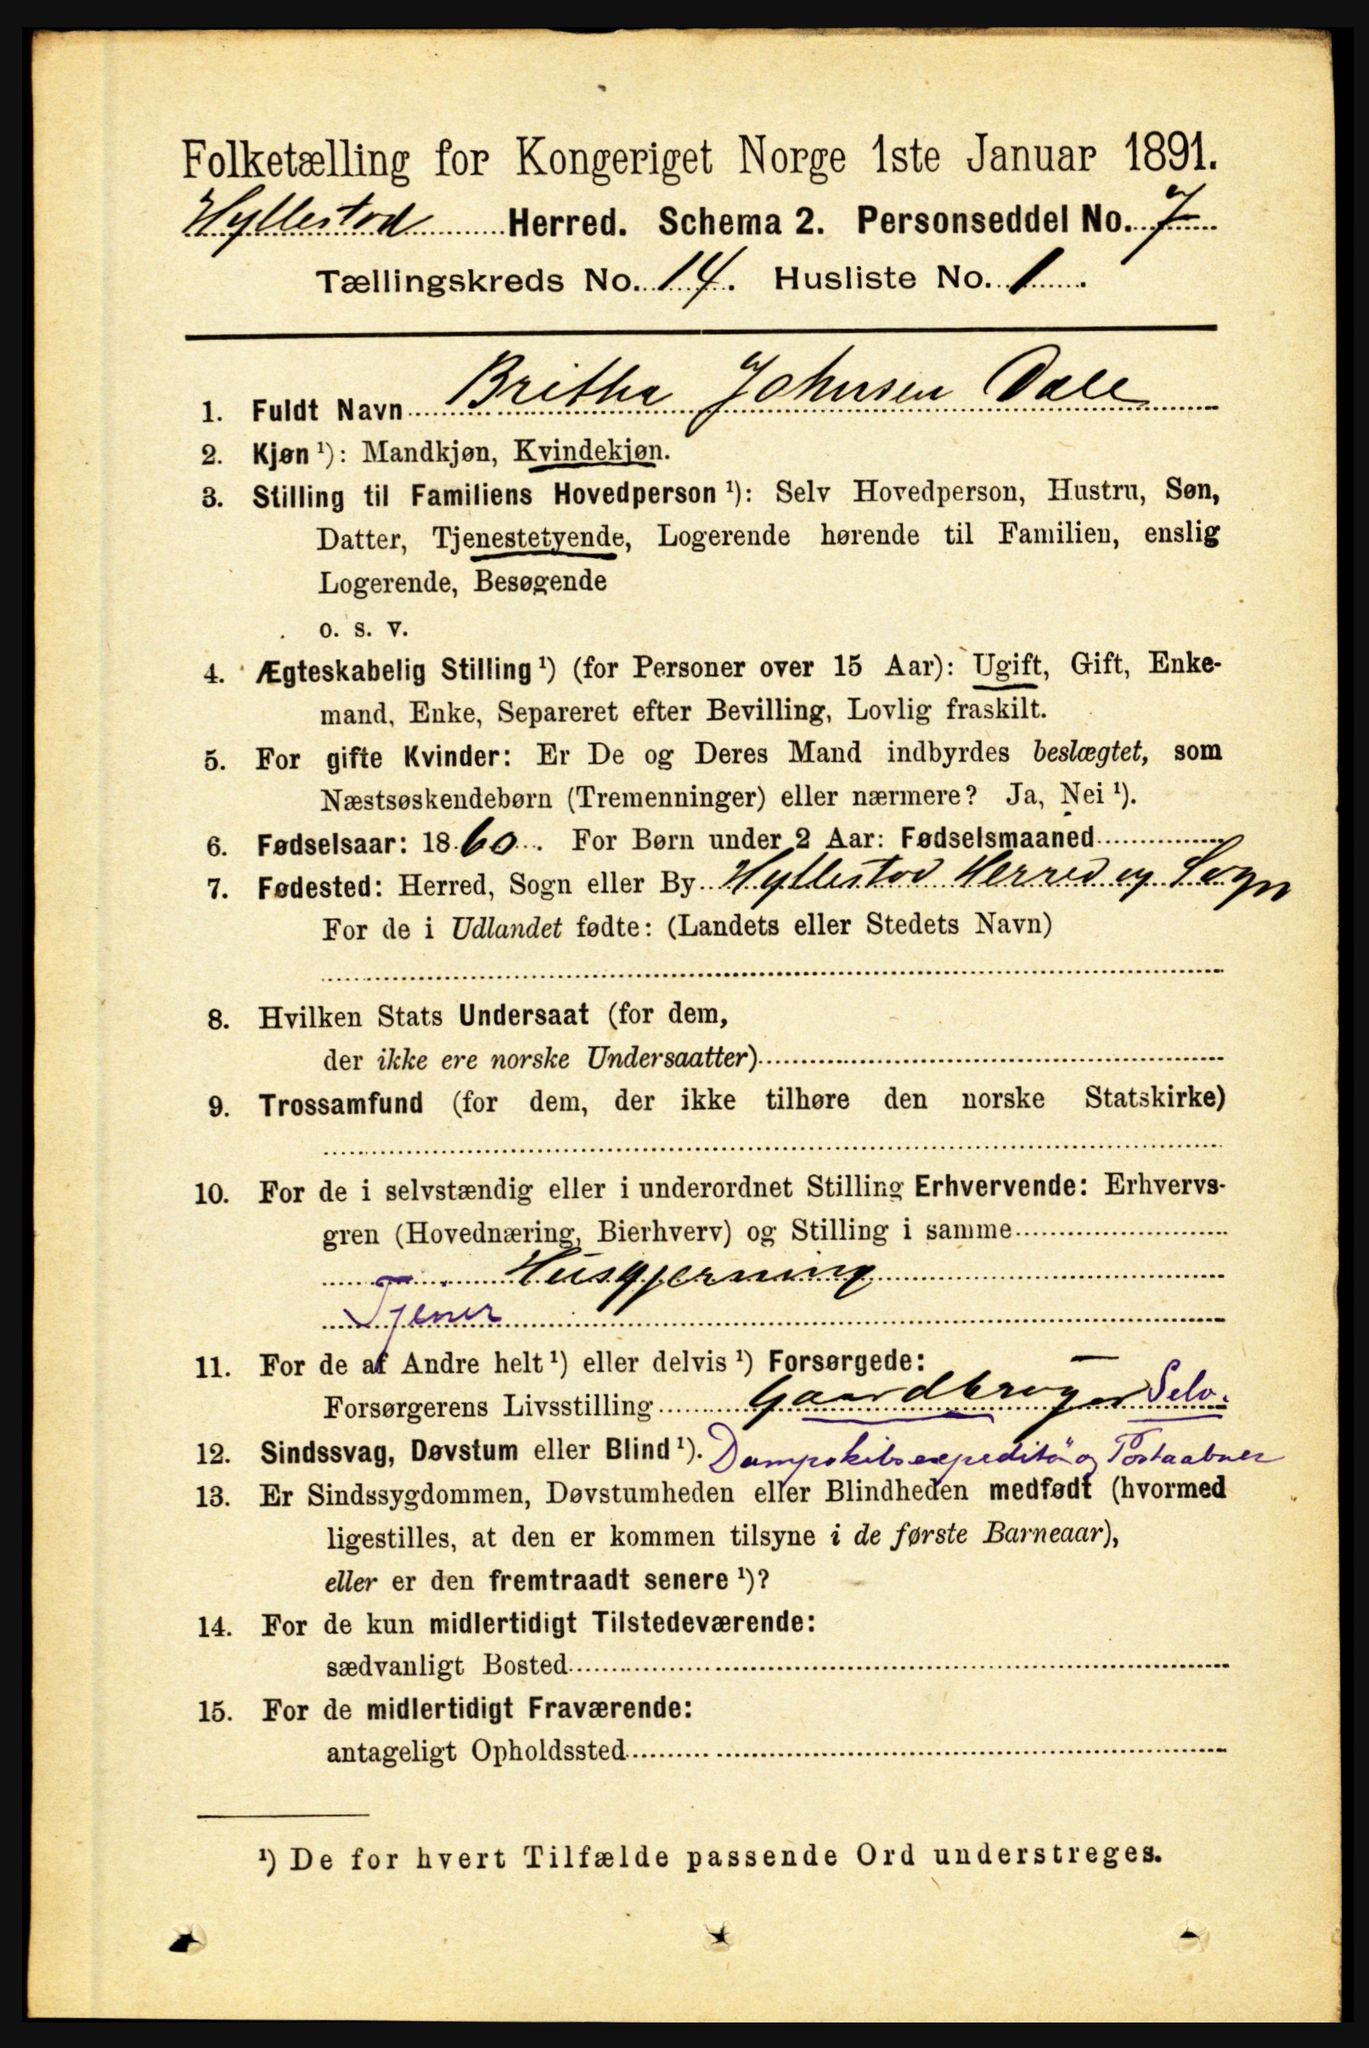 Folketælling for Kongeriget Norge 1ste Januar 1891.
Hyllestad Herred. Schema 2. Personseddel No. 7
Tællingskreds No. 14. Husliste No. 1.
1. Fuldt Navn Britha Johnsen Dale
2. Kjøn ¹): Mandkjøn, Kvindekjøn.
3. Stilling til Familiens Hovedperson ¹): Selv Hovedperson, Hustru, Søn,
Datter, Tjenestetyende, Logerende hørende til Familien, enslig
Logerende, Besøgende
o. s. v.
4. Ægteskabelig Stilling ¹) (for Personer over 15 Aar): Ugift, Gift, Enke-
mand, Enke, Separeret efter Bevilling, Lovlig fraskilt.
5. For gifte Kvinder: Er De og Deres Mand indbyrdes beslægtet, som
Næstsøskendebørn (Tremenninger) eller nærmere? Ja, Nei ¹).
6. Fødselsaar: 1860. For Børn under 2 Aar: Fødselsmaaned
7. Fødested: Herred, Sogn eller By Hyllestad Herred og Sogn
For de i Udlandet fødte: (Landets eller Stedets Navn)
8. Hvilken Stats Undersaat (for dem,
der ikke ere norske Undersaatter)
9. Trossamfund (for dem, der ikke tilhøre den norske Statskirke)
10. For de i selvstændig eller i underordnet Stilling Erhvervende: Erhvervs-
gren (Hovednæring, Bierhverv) og Stilling i samme
Husgjerning
Tjener
11. For de af Andre helt ¹) eller delvis ¹) Forsørgede:
Forsørgerens Livsstilling Gaardbruger Selv.
12. Sindssvag, Døvstum eller Blind ¹). Dampskibsexpeditør og Postaabner
13. Er Sindssygdommen, Døvstumheden eller Blindheden medfødt (hvormed
ligestilles, at den er kommen tilsyne i de første Barneaar),
eller er den fremtraadt senere ¹)?
14. For de kun midlertidigt Tilstedeværende:
sædvanligt Bosted
15. For de midlertidigt Fraværende:
antageligt Opholdssted
¹) De for hvert Tilfælde passende Ord understreges.